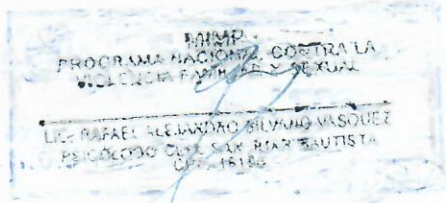 MIMP
PROGRAMA NACIONAL CONTRA LA
VIOLENCIA FAMILIAR Y SEXUAL
LIC. RAFAEL ALEJANDRO SILVANO VASQUEZ
PSICOLOGO CEM SAN JUAN BAUTISTA